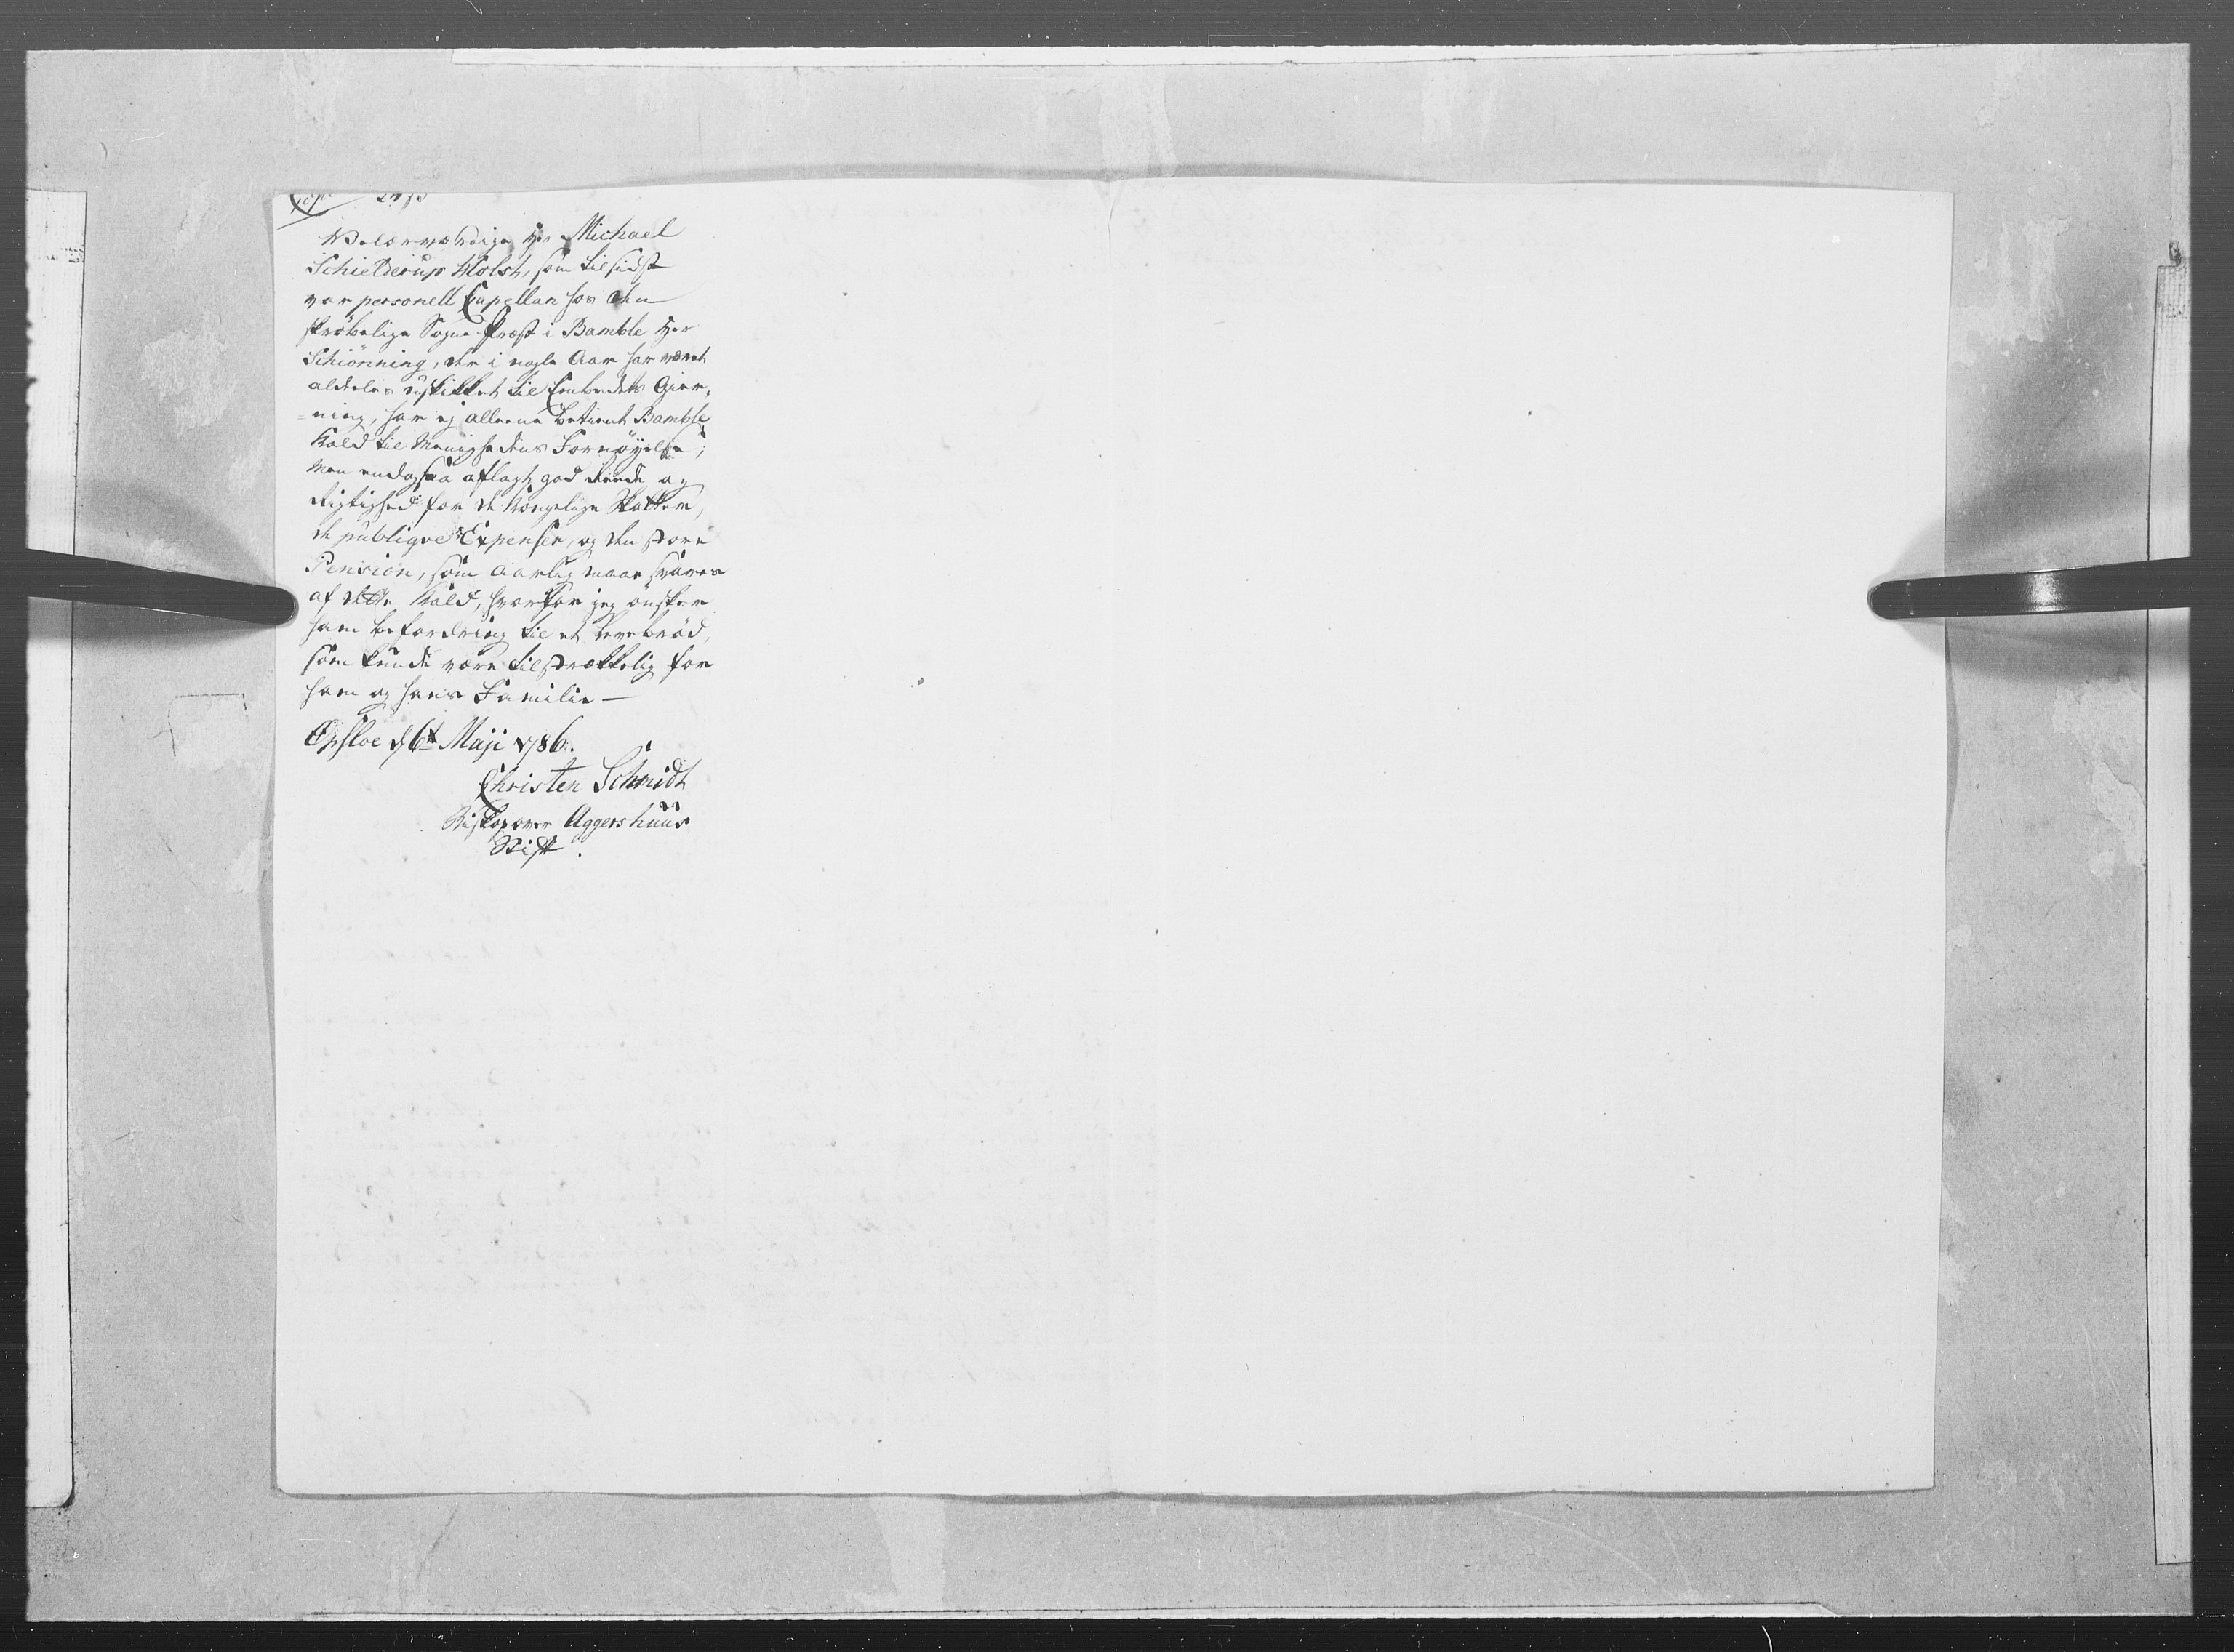 Velærværdige Hr Michael
Schielderup Holst, som tilsidst
var personell Capellan hos den
skröbelige Sogne-Præst i Bamble Her
Schiönning, der i nogle Aar har været
aldeles uskikket til Embedets Gier-
=ning, har ej alleene betient Bamble
Kald til Menighedens Fornöyelse;
Men endogsaa aflagt god Rede og
Rigtighed for de Kongelige Skatter,
de publiqve Expenser, og den store
Pension, som Aarlig maae svares
af dette Kald, hvorfor jeg önsker
ham befordring til et Levebröd,
som kunde være tilstrækkelig for
ham og hans Familie —
Opsloe d 6t Maji 1786.
Christen Schmidt
Biskop over Aggershuus
Stift.